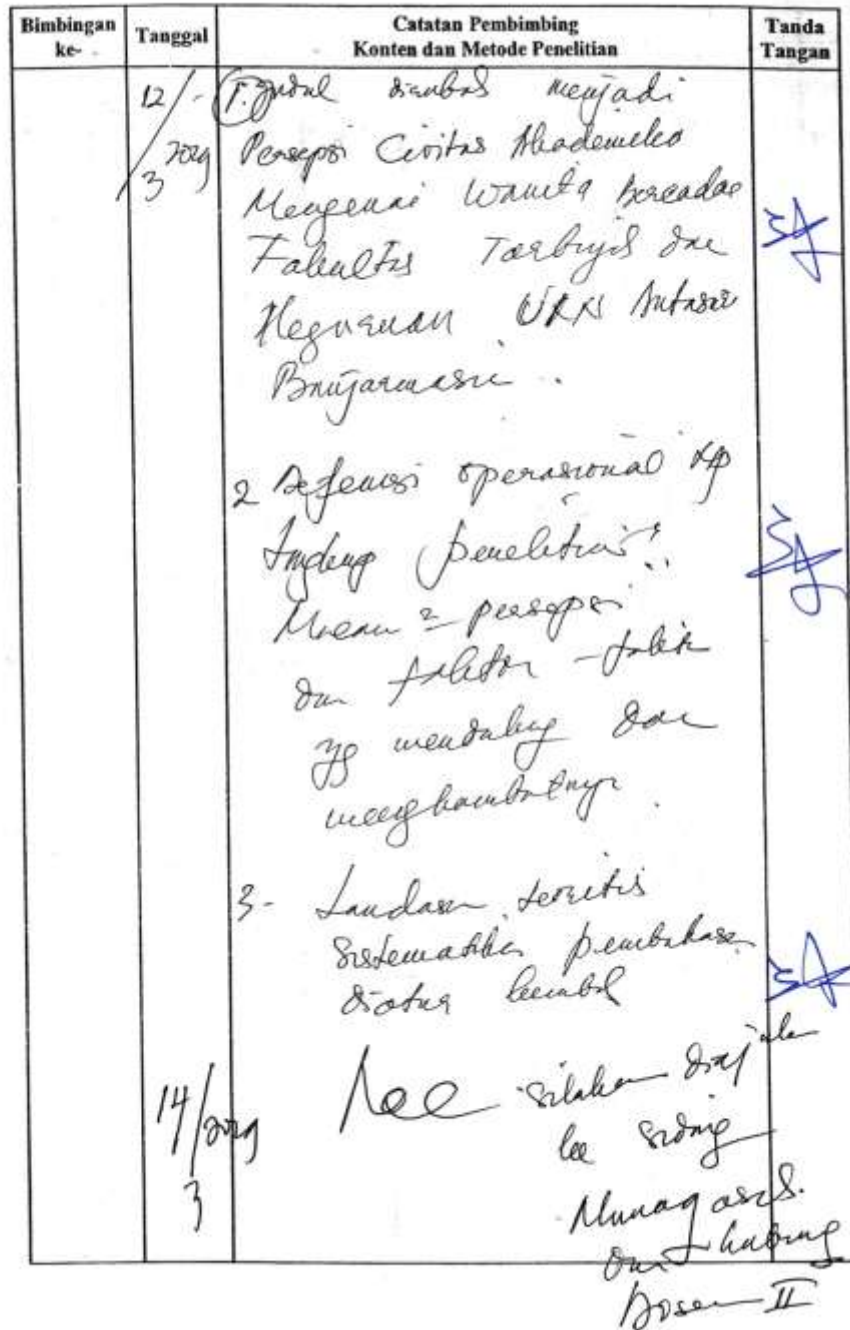 Bimbingan ke-
Tanggal
Catatan Pembimbing
Konten dan Metode Penelitian
Tanda Tangan
12/3 2019
1. Judul diubah menjadi
Persepsi Civitas Akademika
Mengenai Wanita Bercadar
Fakultas Tarbiyah dan
Keguruan UIN Antasari
Banjarmasin.
2 Defenisi operasional
penelitian
Macam2 persepsi
dan faktor-faktor
yg mendukung dan
menghambatnya.
3- Landasan teoritis
Sistematika pembahasan
diatur kembali
14/3 2019
Acc silakan diajukan
ke sidang
Munaqasah.
dan hubungi
Dosen II